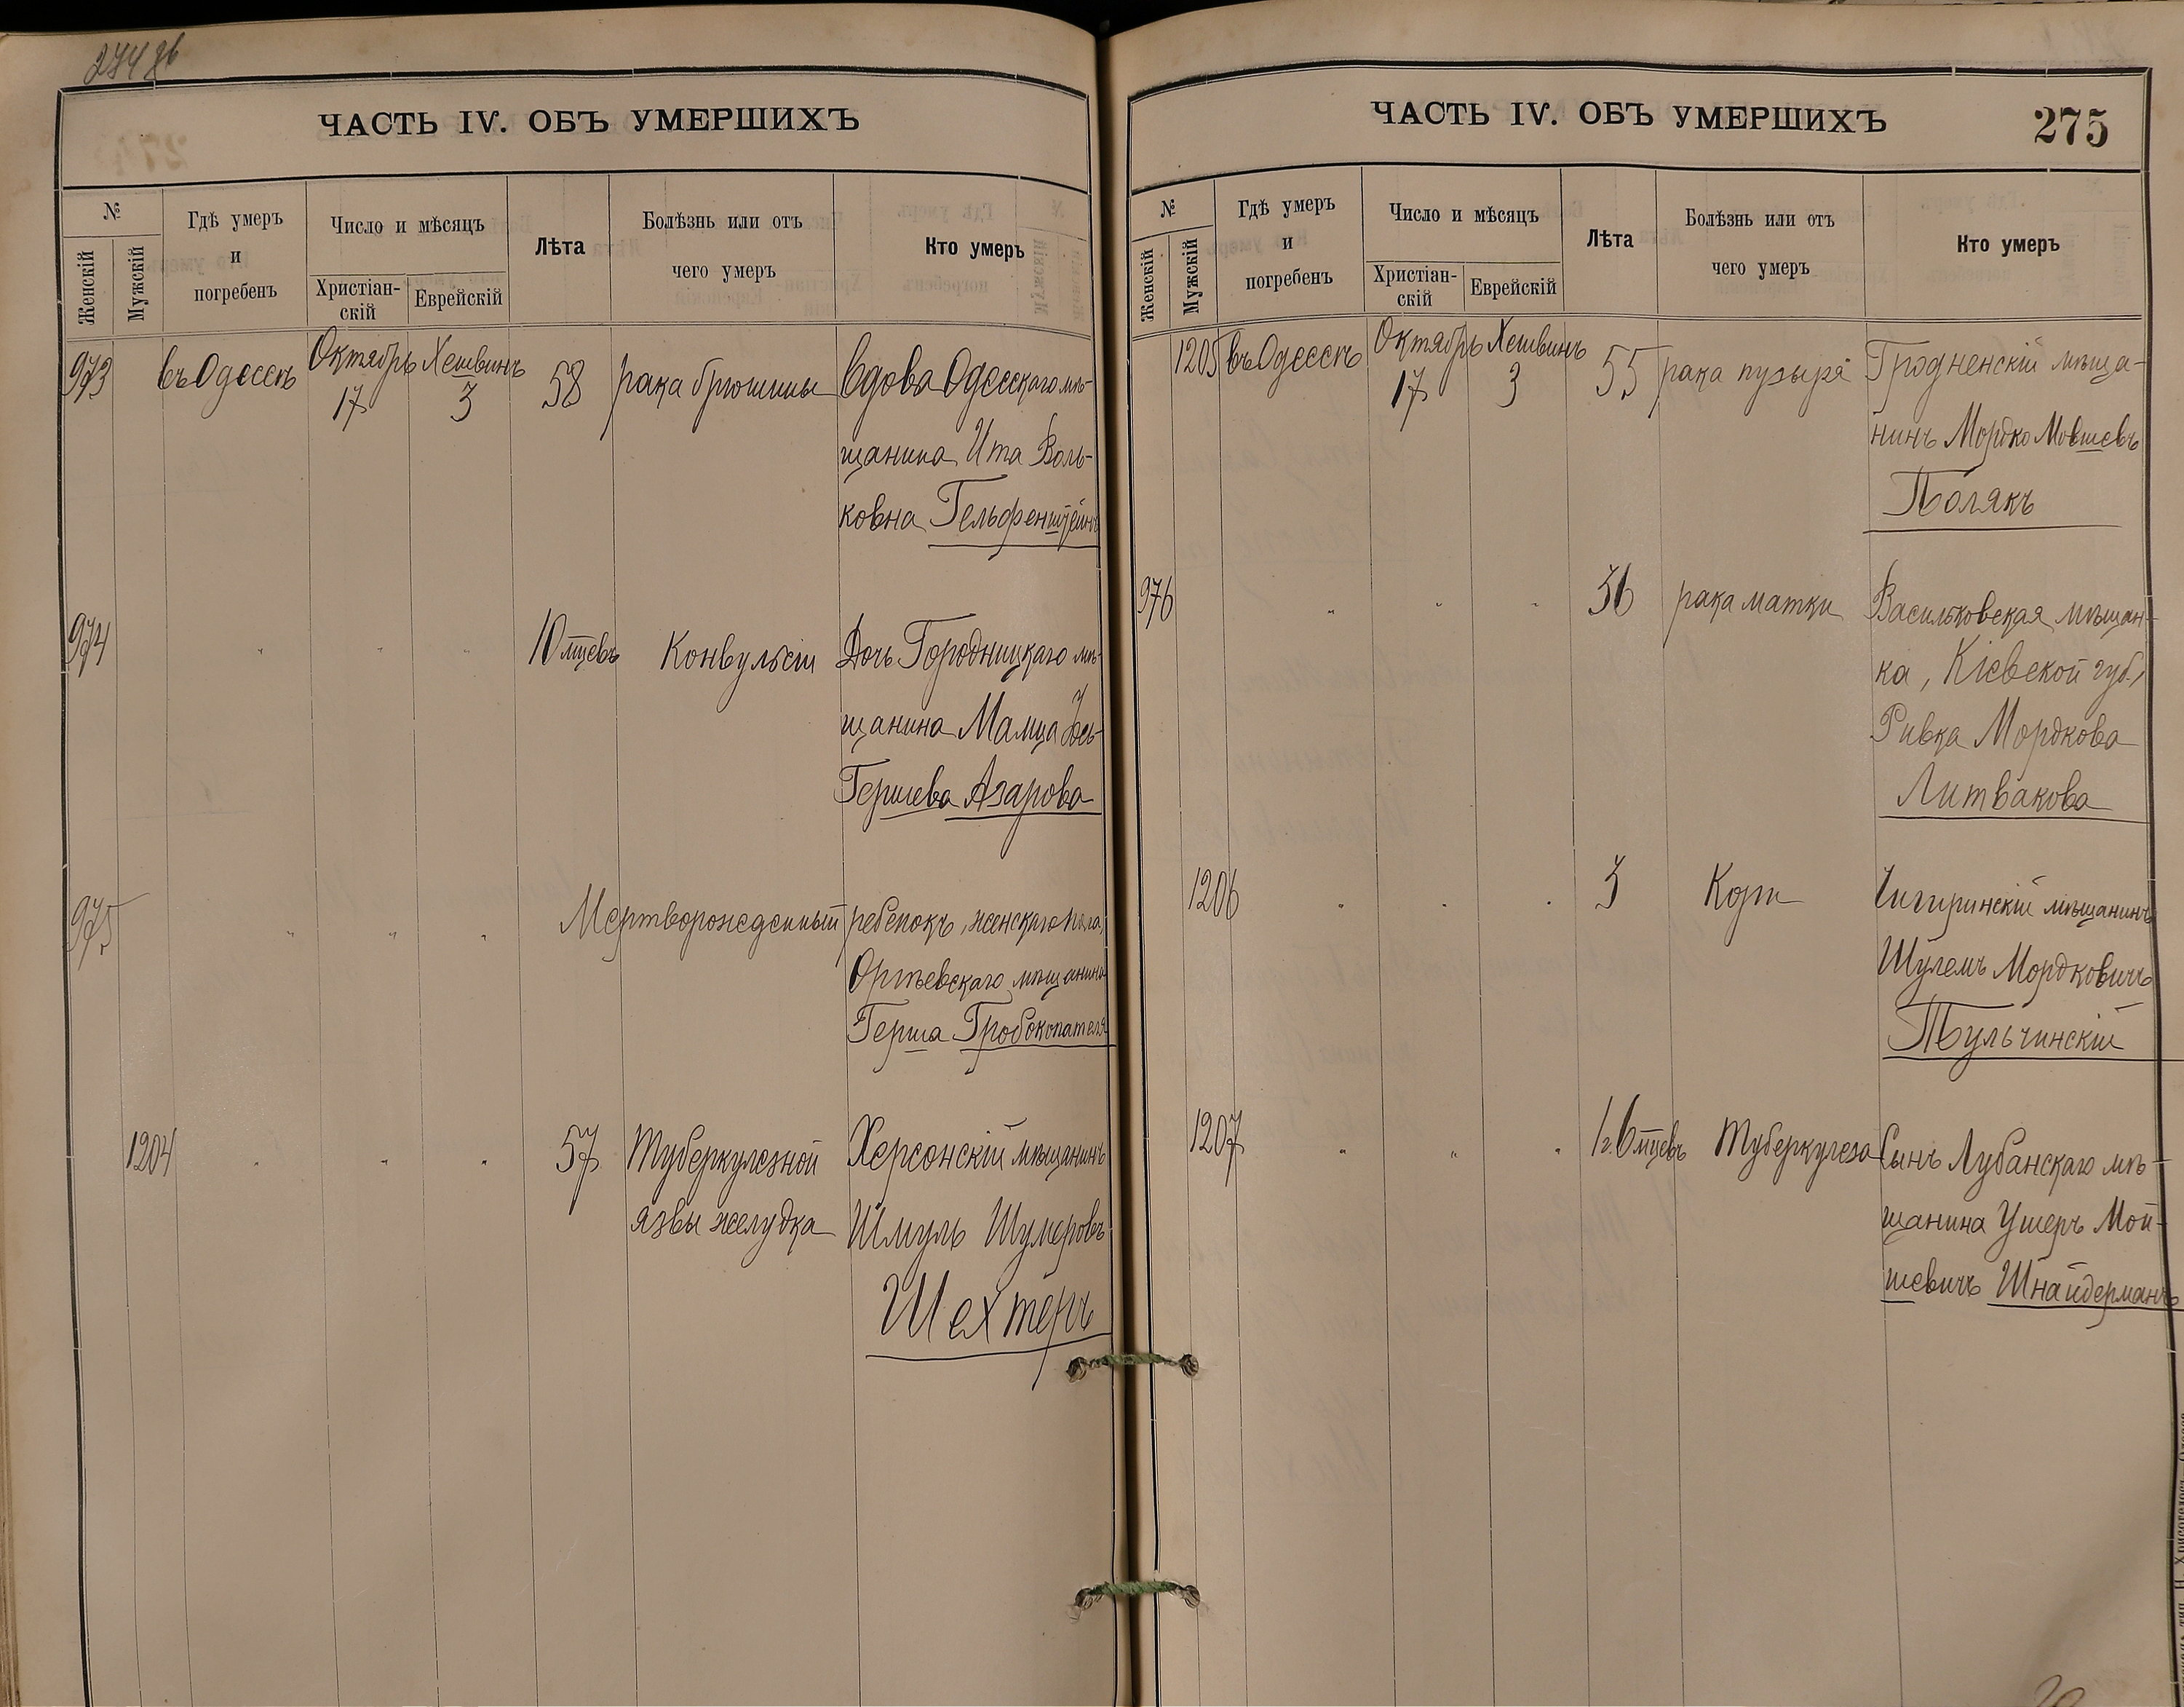 274 об
ЧАСТЬ IV. ОБЪ УМЕРШИХЪ
№
Женскій
Мужскій
Гдѣ умеръ
и
погребенъ
Число и мѣсяцъ
Христіан-
скій
Еврейскій
Лѣта
Болѣзнь или отъ
чего умеръ
Кто умеръ
973 въ Одессѣ Октябрь Хешвинъ 58 рака брюшины Вдова Одесскаго мѣ-
17 3
щанина Ита Воль-
ковна Гельфенштейнъ
974 " " " 10 мцевъ Конвульсіи Дочь Городницкаго мѣ-
щанина Мамца Іось-
Гершева Азарова
975 " " " Мертворожденный ребенокъ, женскаго пола,
мѣщанина
Герша Гробокопателя
1204 " " " 57 Туберкулезной Херсонскій мѣщанинъ
язвы желудка Шмуль Шумеровъ
Шехтеръ
ЧАСТЬ IV. ОБЪ УМЕРШИХЪ
275
№
Женскій
Мужскій
Гдѣ умеръ
и
погребенъ
Число и мѣсяцъ
Христіан-
скій
Еврейскій
Лѣта
Болѣзнь или отъ
чего умеръ
Кто умеръ
1205 въ Одессѣ Октябрь Хешвинъ 55 рака пузыря Гродненскій мѣща-
17 3
нинъ Мордко Мовшевъ
Полякъ
976 " " " 36 рака матки Васильковская мѣщан-
ка, Кіевской губ.,
Ривка Мордкова
Литвакова
1206 " " " 3 Кори Чигиринскій мѣщанинъ
Шулемъ Мордковичъ
Тульчинскій
1207 " " " 1 г. 6 мцевъ Туберкулеза Сынъ Лубанскаго мѣ-
щанина Ушеръ Мой-
шевичъ Шнайдерманъ